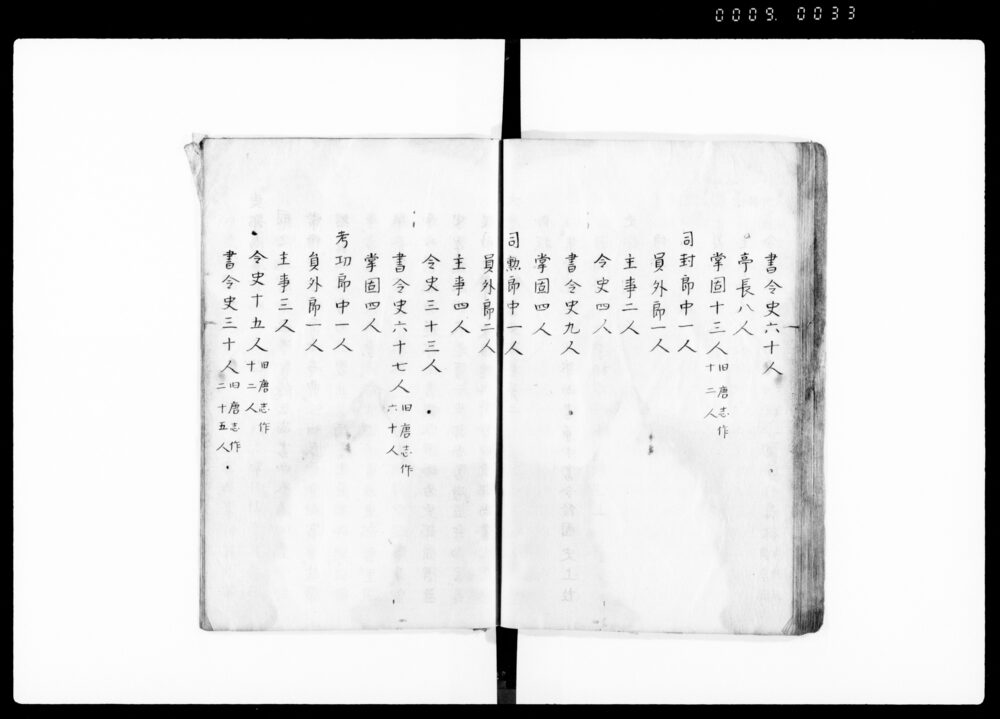 0009. 0033
書令史六十人
亭長八人
掌固十三人旧唐志作十二人
司封郎中一人
員外郎一人
主事二人
令史四人
書令史九人
掌固四人
司勲郎中一人
員外郎二人
主事四人
令史三十三人
書令史六十七人旧唐志作六十人
掌固四人
考功郎中一人
員外郎一人
主事三人
令史十五人旧唐志作十二人
書令史三十人旧唐志作二十五人